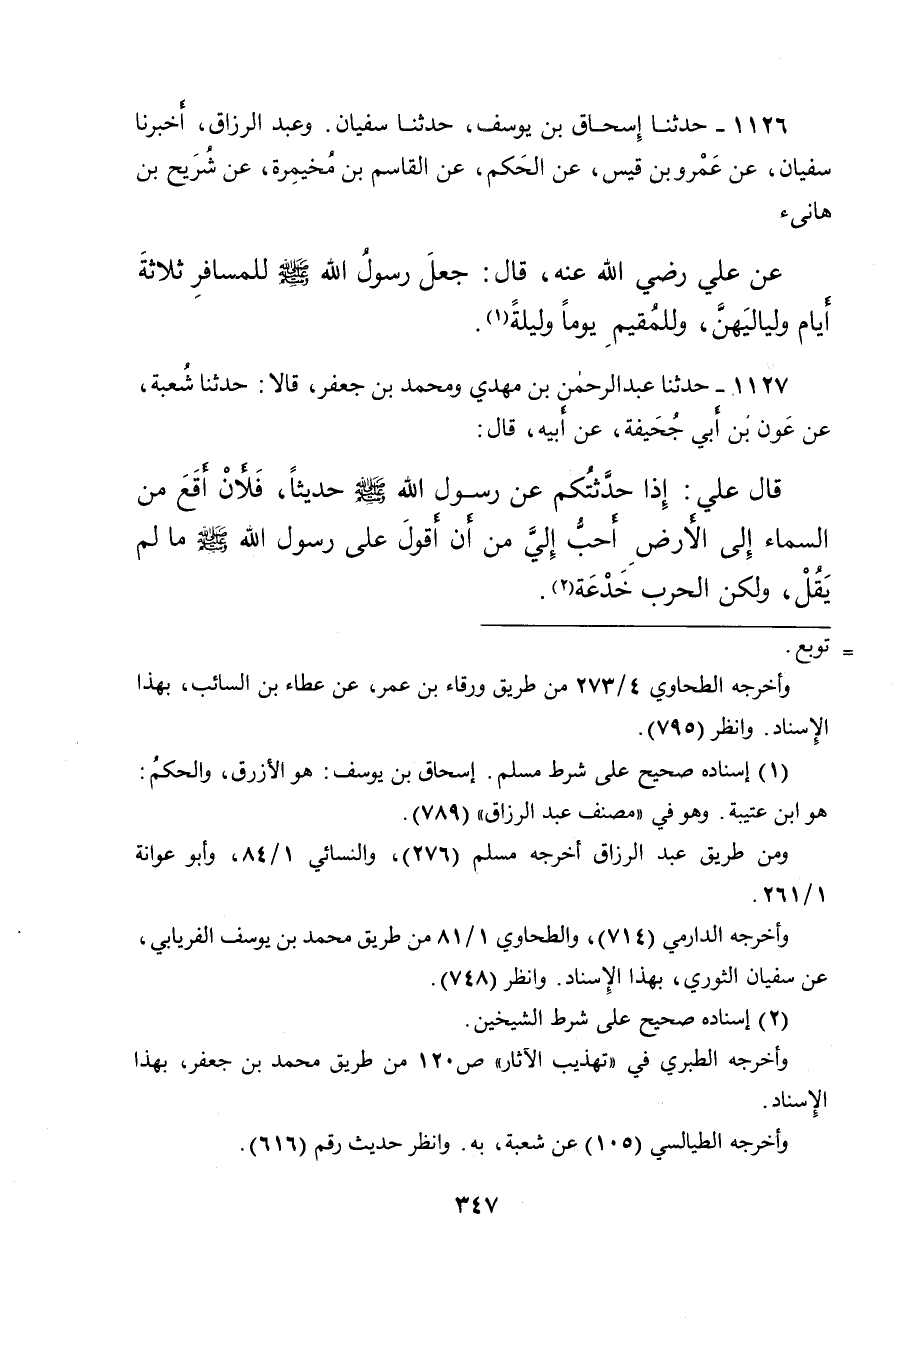 ١١٢٦ - حدثنـا إسحـاق بن يوسف، حدثنـا سفيان. وعبد الرزاق، أَخبرنا
سفيان، عن عَمْرو بن قيس، عن الحَكم، عن القاسم بن مُخيمِرة، عن شُرَيح بن
هانىء
عن علي رضي الله عنه، قال: جعلَ رسولُ الله ﷺ للمسافرِ ثلاثةَ
أَيام ولياليَهنَّ، وللمُقيمِ يوماً وليلةً(١).
١١٢٧ - حدثنا عبدالرحمٰن بن مهدي ومحمد بن جعفر، قالا: حدثنا شُعبة،
عن عَون بُن أَبي جُحَيفة، عن أَبيه، قال:
قال علي: إِذا حدَّثتُكم عن رسـول الله ﷺ حديثاً، فَلَأَنْ أَقَعَ من
السماء إِلى الأَرضِ أَحبُّ إِليَّ من أَن أَقولَ على رسول الله ﷺ ما لم
يَقُلْ، ولكن الحرب خَدْعَة(٢).
= توبع.
وأخرجه الطحاوي ٢٧٣/٤ من طريق ورقاء بن عمر، عن عطاء بن السائب، بهذا
الإِسناد. وانظر (٧٩٥).
(١) إسناده صحيح على شرط مسلم. إسحاق بن يوسف: هو الأزرق، والحكمُ:
هو ابن عتيبة. وهو في «مصنف عبد الرزاق» (٧٨٩).
ومن طريق عبد الرزاق أخرجه مسلم (٢٧٦)، والنسائي ٨٤/١، وأبو عوانة
٢٦١/١.
وأخرجه الدارمي (٧١٤)، والطحاوي ٨١/١ من طريق محمد بن يوسف الفريابي،
عن سفيان الثوري، بهذا الإِسناد. وانظر (٧٤٨).
(٢) إسناده صحيح على شرط الشيخين.
وأخرجه الطبري في «تهذيب الآثار» ص١٢٠ من طريق محمد بن جعفر، بهذا
الإِسناد.
وأخرجه الطيالسي (١٠٥) عن شعبة، به. وانظر حديث رقم (٦١٦).
٣٤٧